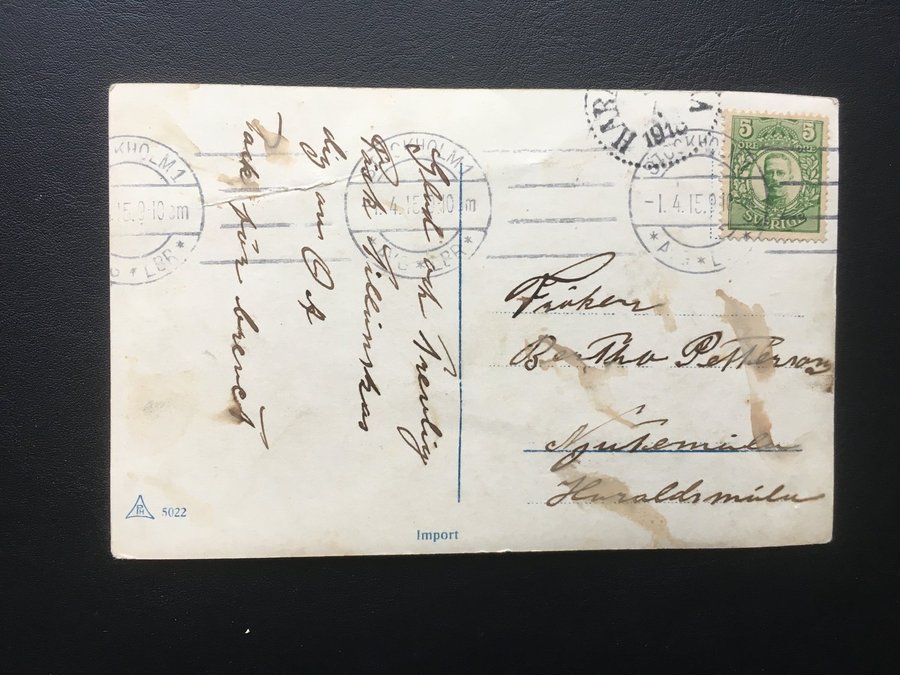 Glad och Trevlig
Påsk Tillönskas
dig av O A
Tack för brevet
Fröken
Bertha Petterson
Haraldsmåla
STOCKHOLM 1
-1.4.15.9-10
STOCKHOLM 1
4.15. 10 em
KHOLM 1
.15.9-10 em
LBR
HAR
1915
5 5
ÖRE
SVERIGE
5022
Import